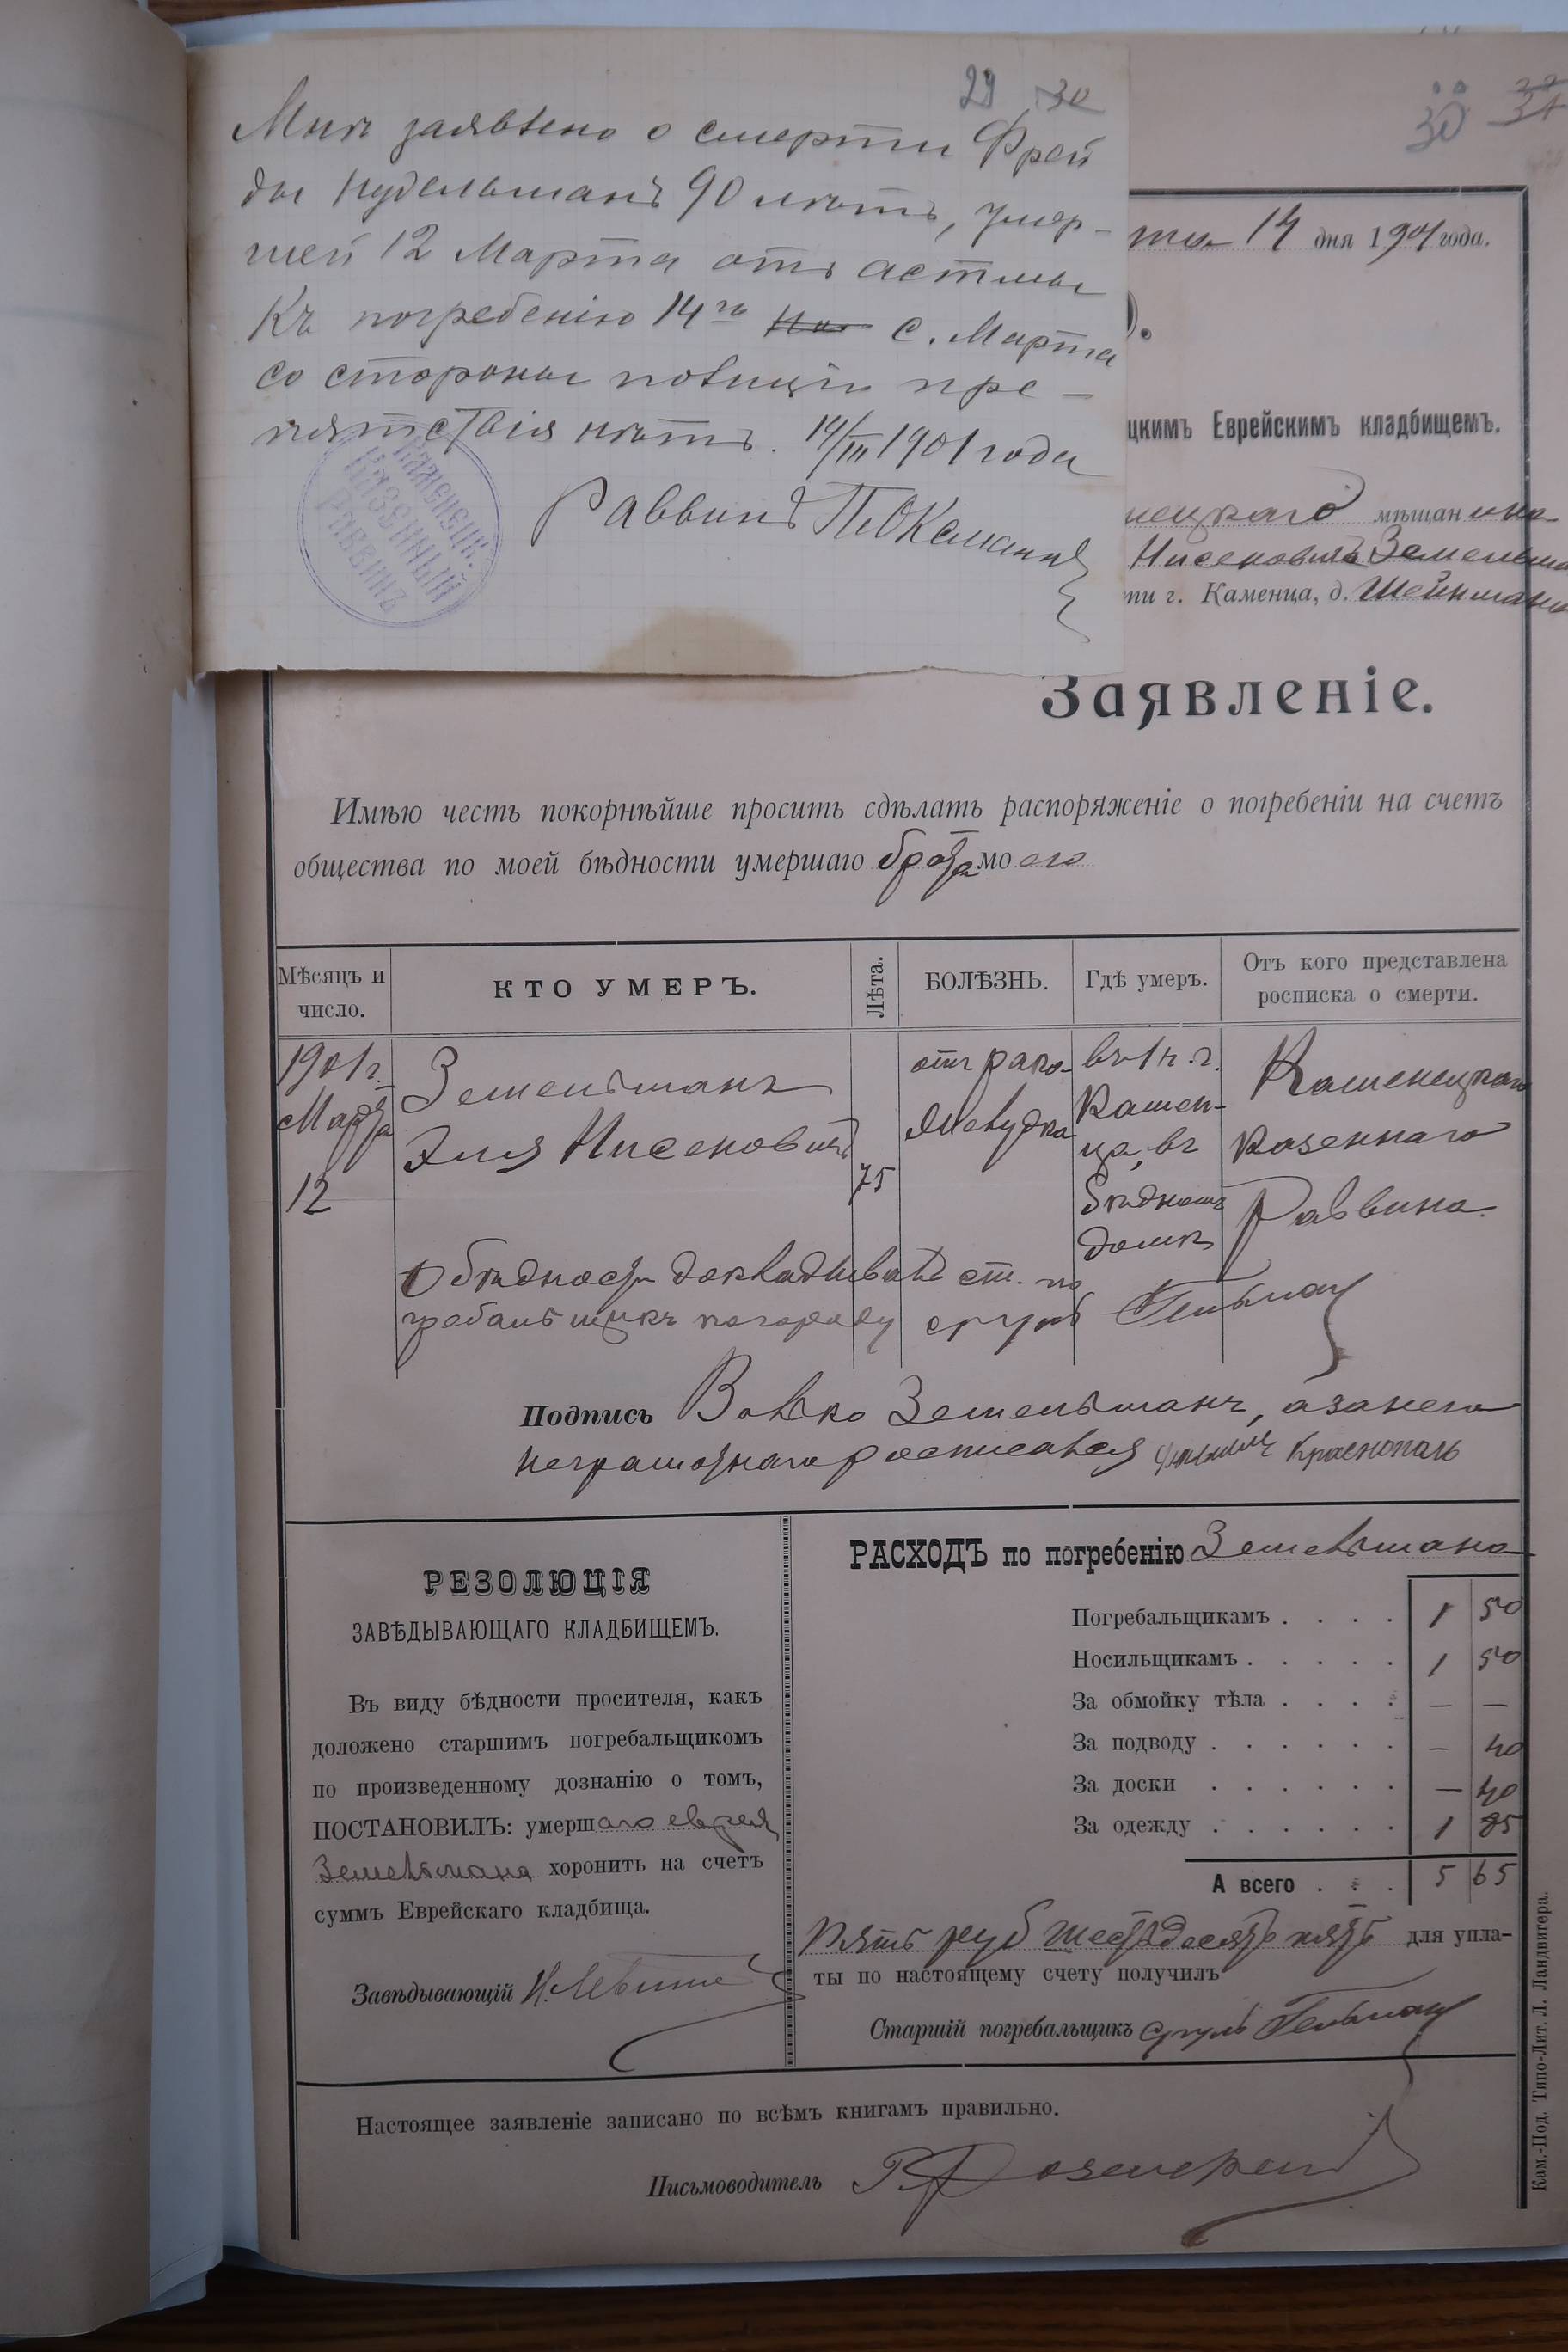 29 30
Мнѣ заявлено о смерти Фрей
ды Нудельманъ 90 лѣтъ, умер-
шей 12 Марта отъ астмы
Къ погребенію 14го с. Марта
со стороны полиціи пре-
пятствія нѣтъ. 14/III 1901 года
Раввинъ
КАМЕНЕЦК.
КАЗЕННЫЙ
РАВВИНЪ
30 31
та 14 дня 1901 года.
цкимъ Еврейскимъ кладбищемъ.
нецкаго мѣщанина
Нисеновичъ Земельма
ти г. Каменца, д. Шейнмана
Заявленіе.
Имѣю честь покорнѣйше просить сдѣлать распоряженіе о погребеніи на счетъ
общества по моей бѣдности умершаго брата моего
Мѣсяцъ и число.
КТО УМЕРЪ.
Лѣта.
БОЛѢЗНЬ.
Гдѣ умеръ.
Отъ кого представлена росписка о смерти.
1901 г.
Марта
12
Земельманъ
Эля Нисеновичъ
75
отъ рака
желудка
въ г.
Камен-
ца, въ
бѣдномъ
домѣ
Каменецкаго
Казеннаго
Раввина
О бѣдности докладываетъ ст. по
гребальщикъ по городу Сруль Гельман
Подпись Волько Земельманъ, а за него
неграмотнаго росписался Краснополь
РЕЗОЛЮЦІЯ
ЗАВѢДЫВАЮЩАГО КЛАДБИЩЕМЪ.
Въ виду бѣдности просителя, какъ
доложено старшимъ погребальщикомъ
по произведенному дознанію о томъ,
ПОСТАНОВИЛЪ: умершаго еврея
Земельмана хоронить на счетъ
суммъ Еврейскаго кладбища.
Завѣдывающій
РАСХОДЪ по погребенію Земельмана
Погребальщикамъ . . . . 1 50
Носильщикамъ . . . . . 1 50
За обмойку тѣла . . . . — —
За подводу . . . . . . — 40
За доски . . . . . . — 40
За одежду . . . . . . 1 85
А всего . . . 5 65
Пять руб шестьдесятъ пять для упла-
ты по настоящему счету получилъ
Старшій погребальщикъ Сруль Гельман
Настоящее заявленіе записано по всѣмъ книгамъ правильно.
Письмоводитель
Кам.-Под. Типо-Лит. Л. Ландвигера.